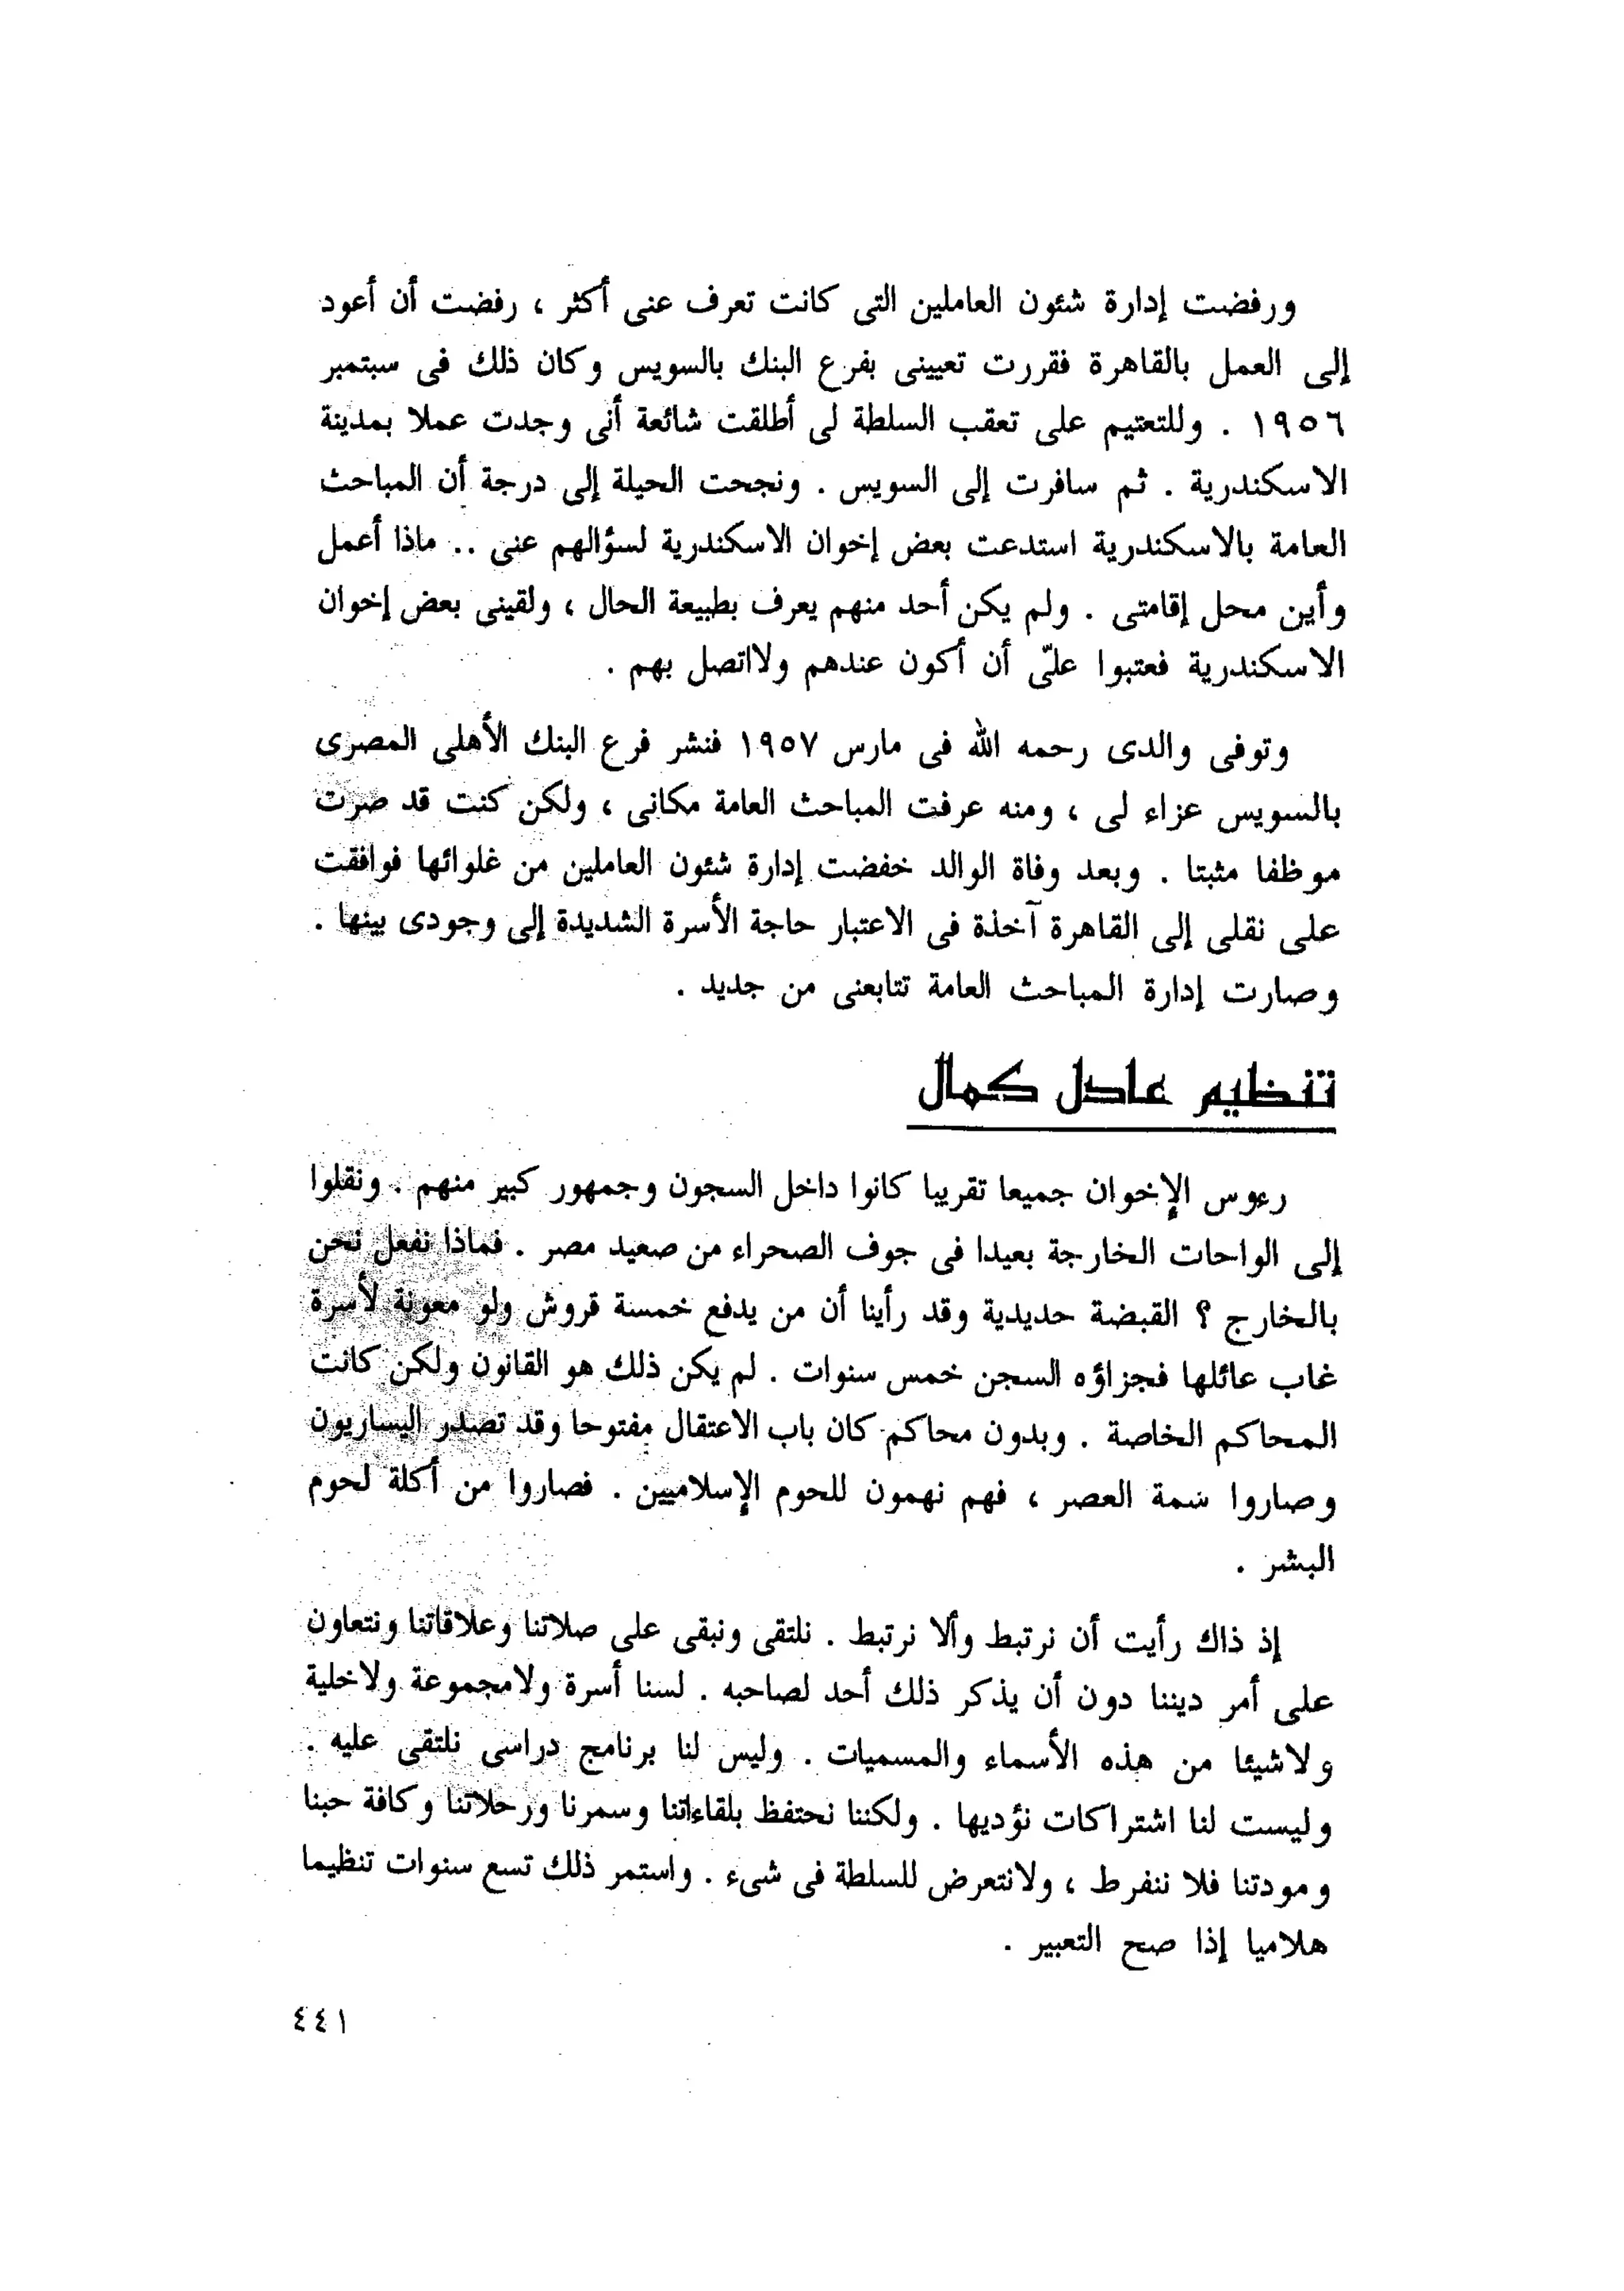 ورفضت إدارة شئون العاملين التى كانت تعرف عنى أكثر ، رفضت أن أعود
إلى العمل بالقاهرة فقررت تعيينى بفرع البنك بالسويس وكان ذلك فى سبتمبر
١٩٥٦ . وللتعتيم على تعقب السلطة لى أطلقت شائعة أنى وجدت عملا بمدينة
الاسكندرية . ثم سافرت إلى السويس . ونجحت الحيلة إلى درجة أن المباحث
العامة بالاسكندرية استدعت بعض إخوان الاسكندرية لسؤالهم عنى .. ماذا أعمل
وأين محل إقامتى . ولم يكن أحد منهم يعرف بطبيعة الحال ، ولقينى بعض إخوان
الاسكندرية فعتبوا علىّ أن أكون عندهم ولااتصل بهم .
وتوفى والدى رحمه الله فى مارس ١٩٥٧ فنشر فرع البنك الأهلى المصرى
بالسويس عزاء لى ، ومنه عرفت المباحث العامة مكانى ، ولكن كنت قد صرت
موظفا مثبتا . وبعد وفاة الوالد خفضت إدارة شئون العاملين من غلوائها فوافقت
على نقلى إلى القاهرة آخذة فى الاعتبار حاجة الأسرة الشديدة إلى وجودى بينها .
وصارت إدارة المباحث العامة تتابعنى من جديد .
تنظيم عادل كمال
رءوس الإخوان جميعا تقريبا كانوا داخل السجون وجمهور كبير منهم . ونقلوا
إلى الواحات الخارجة بعيدا فى جوف الصحراء من صعيد مصر . فماذا نفعل نحن
بالخارج ؟ القبضة حديدية وقد رأينا أن من يدفع خمسة قروش ولو معونة لأسرة
غاب عائلها فجزاؤه السجن خمس سنوات . لم يكن ذلك هو القانون ولكن كانت
المحاكم الخاصة . وبدون محاكم كان باب الاعتقال مفتوحا وقد تصدر اليساريون
وصاروا سمة العصر ، فهم نهمون للحوم الإسلاميين . فصاروا من أكلة لحوم
البشر .
إذ ذاك رأيت أن نرتبط وألا نرتبط . نلتقى ونبقى على صلاتنا وعلاقاتنا ونتعاون
على أمر ديننا دون أن يذكر ذلك أحد لصاحبه . لسنا أسرة ولامجموعة ولاخلية
ولاشيئا من هذه الأسماء والمسميات . وليس لنا برنامج دراسى نلتقى عليه .
وليست لنا اشتراكات نؤديها . ولكننا نحتفظ بلقاءاتنا وسمرنا ورحلاتنا وكافة حبنا
ومودتنا فلا ننفرط ، ولانتعرض للسلطة فى شىء . واستمر ذلك تسع سنوات تنظيما
هلاميا إذا صح التعبير .
٤٤١